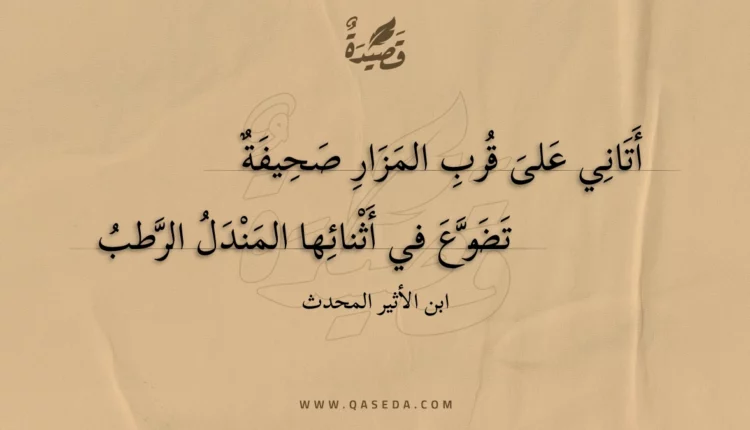 قَصِيدَةٌ
أَتَانِي عَلىَ قُربِ المَزَارِ صَحِيفَةٌ
تَضَوَّعَ في أَثْنائِها المَنْدَلُ الرَّطبُ
ابن الأثير المحدث
WWW.QASEDA.COM